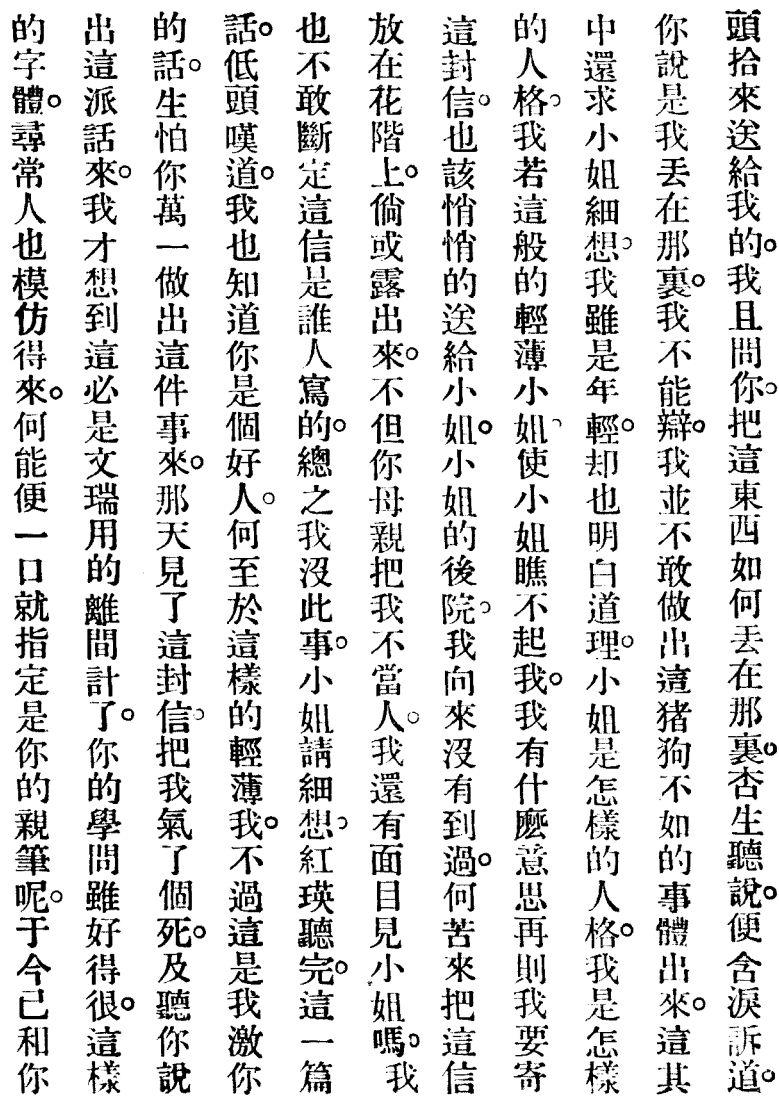 頭拾來送給我的。我且問你。把這東西如何丟在那裏。杏生聽說。便含淚訴道。
你說是我丟在那裏。我不能辯。我並不敢做出這猪狗不如的事體出來。這其
中還求小姐細想。我雖是年輕。却也明白道理。小姐是怎樣的人格。我是怎樣
的人格。我若這般的輕薄小姐、使小姐瞧不起我。我有什麽意思再則我要寄
這封信。也該悄悄的送給小姐。小姐的後院。我向來沒有到過。何苦來把這信
放在花階上。倘或露出來。不但你母親把我不當人。我還有面目見小姐嗎。我
也不敢斷定這信是誰人寫的。總之我沒此事。小姐請細想。紅瑛聽完。這一篇
話。低頭嘆道。我也知道你是個好人。何至於這樣的輕薄我。不過這是我激你
的話。生怕你萬一做出這件事來。那天見了這封信。把我氣了個死。及聽你說
出這派話來。我才想到這必是文瑞用的離間計了。你的學問雖好得很。這樣
的字體。尋常人也模仿得來。何能便一口就指定是你的親筆呢。于今已和你